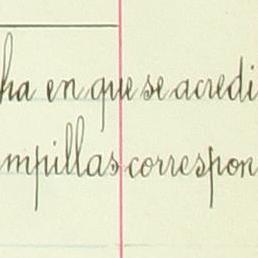 ha en que se acredi
mpillas correspon